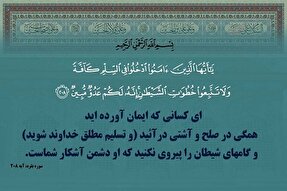 بِسْمِ اللَّهِ الرَّحْمَٰنِ الرَّحِيمِ
يَٰٓأَيُّهَا ٱلَّذِينَ ءَامَنُوا۟ ٱدْخُلُوا۟ فِى ٱلسِّلْمِ كَآفَّةً
وَلَا تَتَّبِعُوا۟ خُطُوَٰتِ ٱلشَّيْطَٰنِ إِنَّهُۥ لَكُمْ عَدُوٌّ مُّبِينٌ ﴿٢٠٨﴾
ای کسانی که ایمان آورده اید
همگی در صلح و آشتی درآئید (و تسلیم مطلق خداوند شوید)
و گامهای شیطان را پیروی نکنید که او دشمن آشکار شماست.
سوره بقره، آیه ۲۰۸